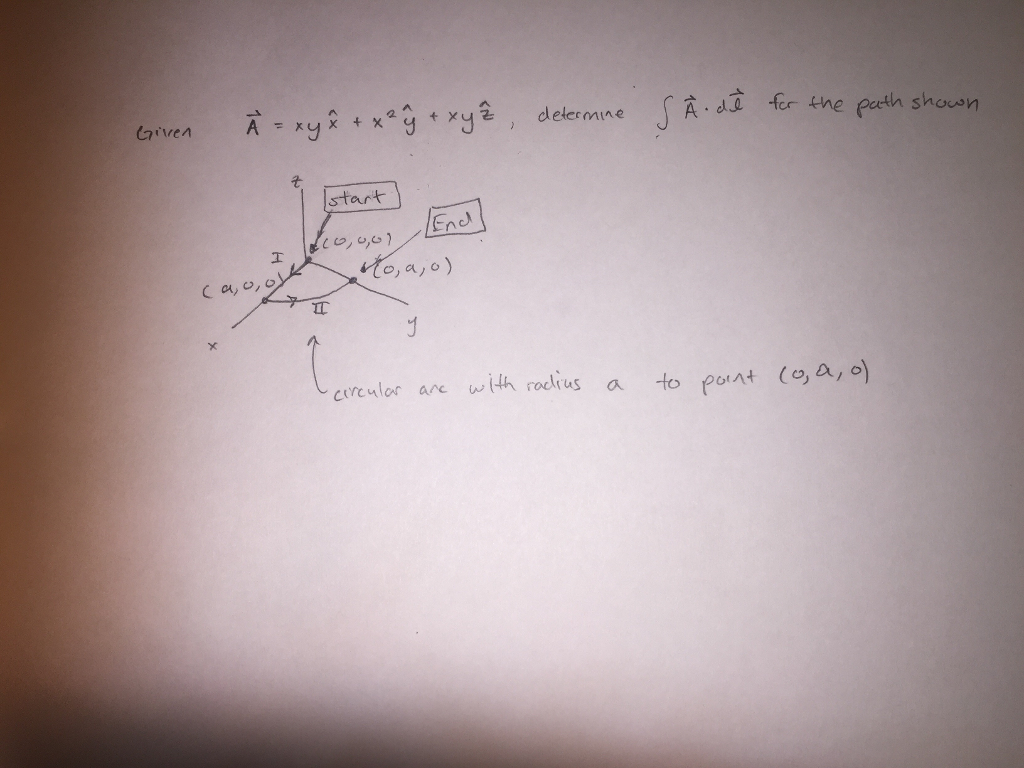 Given A⃗ = xy x̂ + x² ŷ + xy ẑ , determine ∫ A⃗ · dl⃗ for the path shown
z
start
End
(0,0,0)
I
(0,a,0)
(a,0,0)
II
y
x
circular arc with radius a to point (0,a,0)